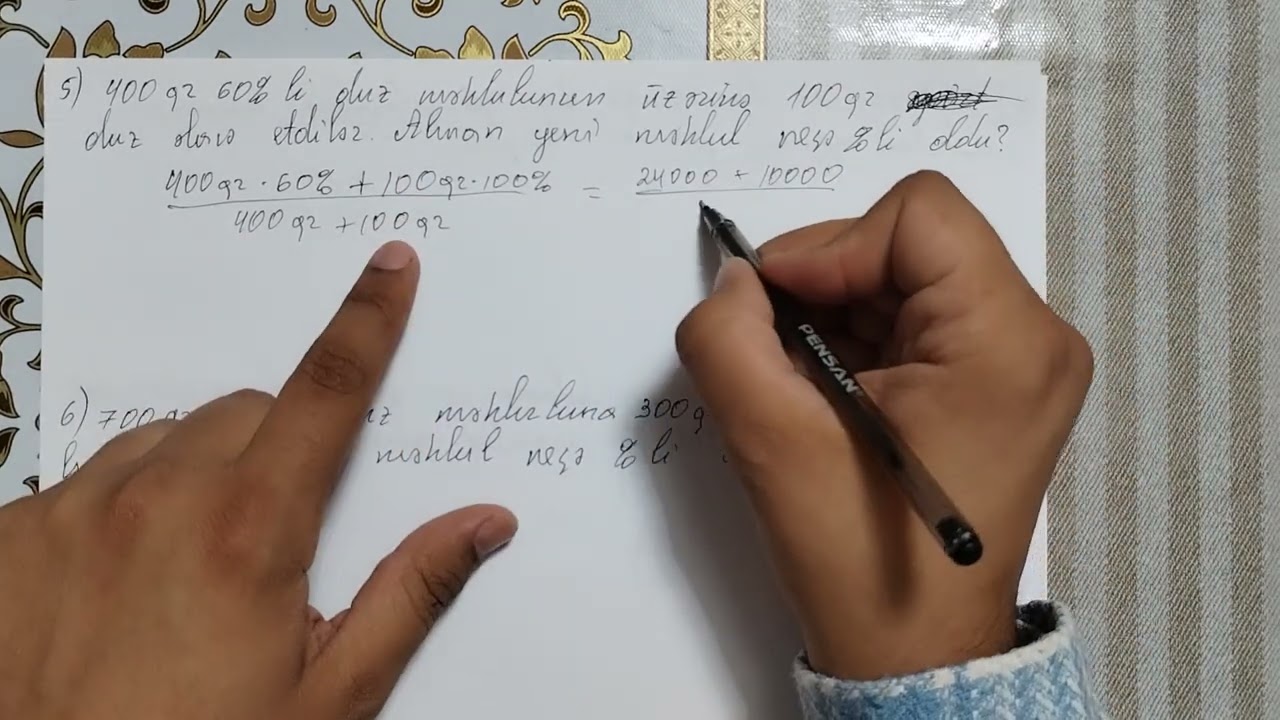 5) 400 qr 60% li duz məhlulunun üzərinə 100 qr
duz əlavə etdilər. Alınan yeni məhlul neçə % li oldu?
400 qr · 60% + 100 qr · 100% = 24000 + 10000
400 qr + 100 qr
6) 700 məhluluna 300 q
məhlul neçə % li
PENSAN